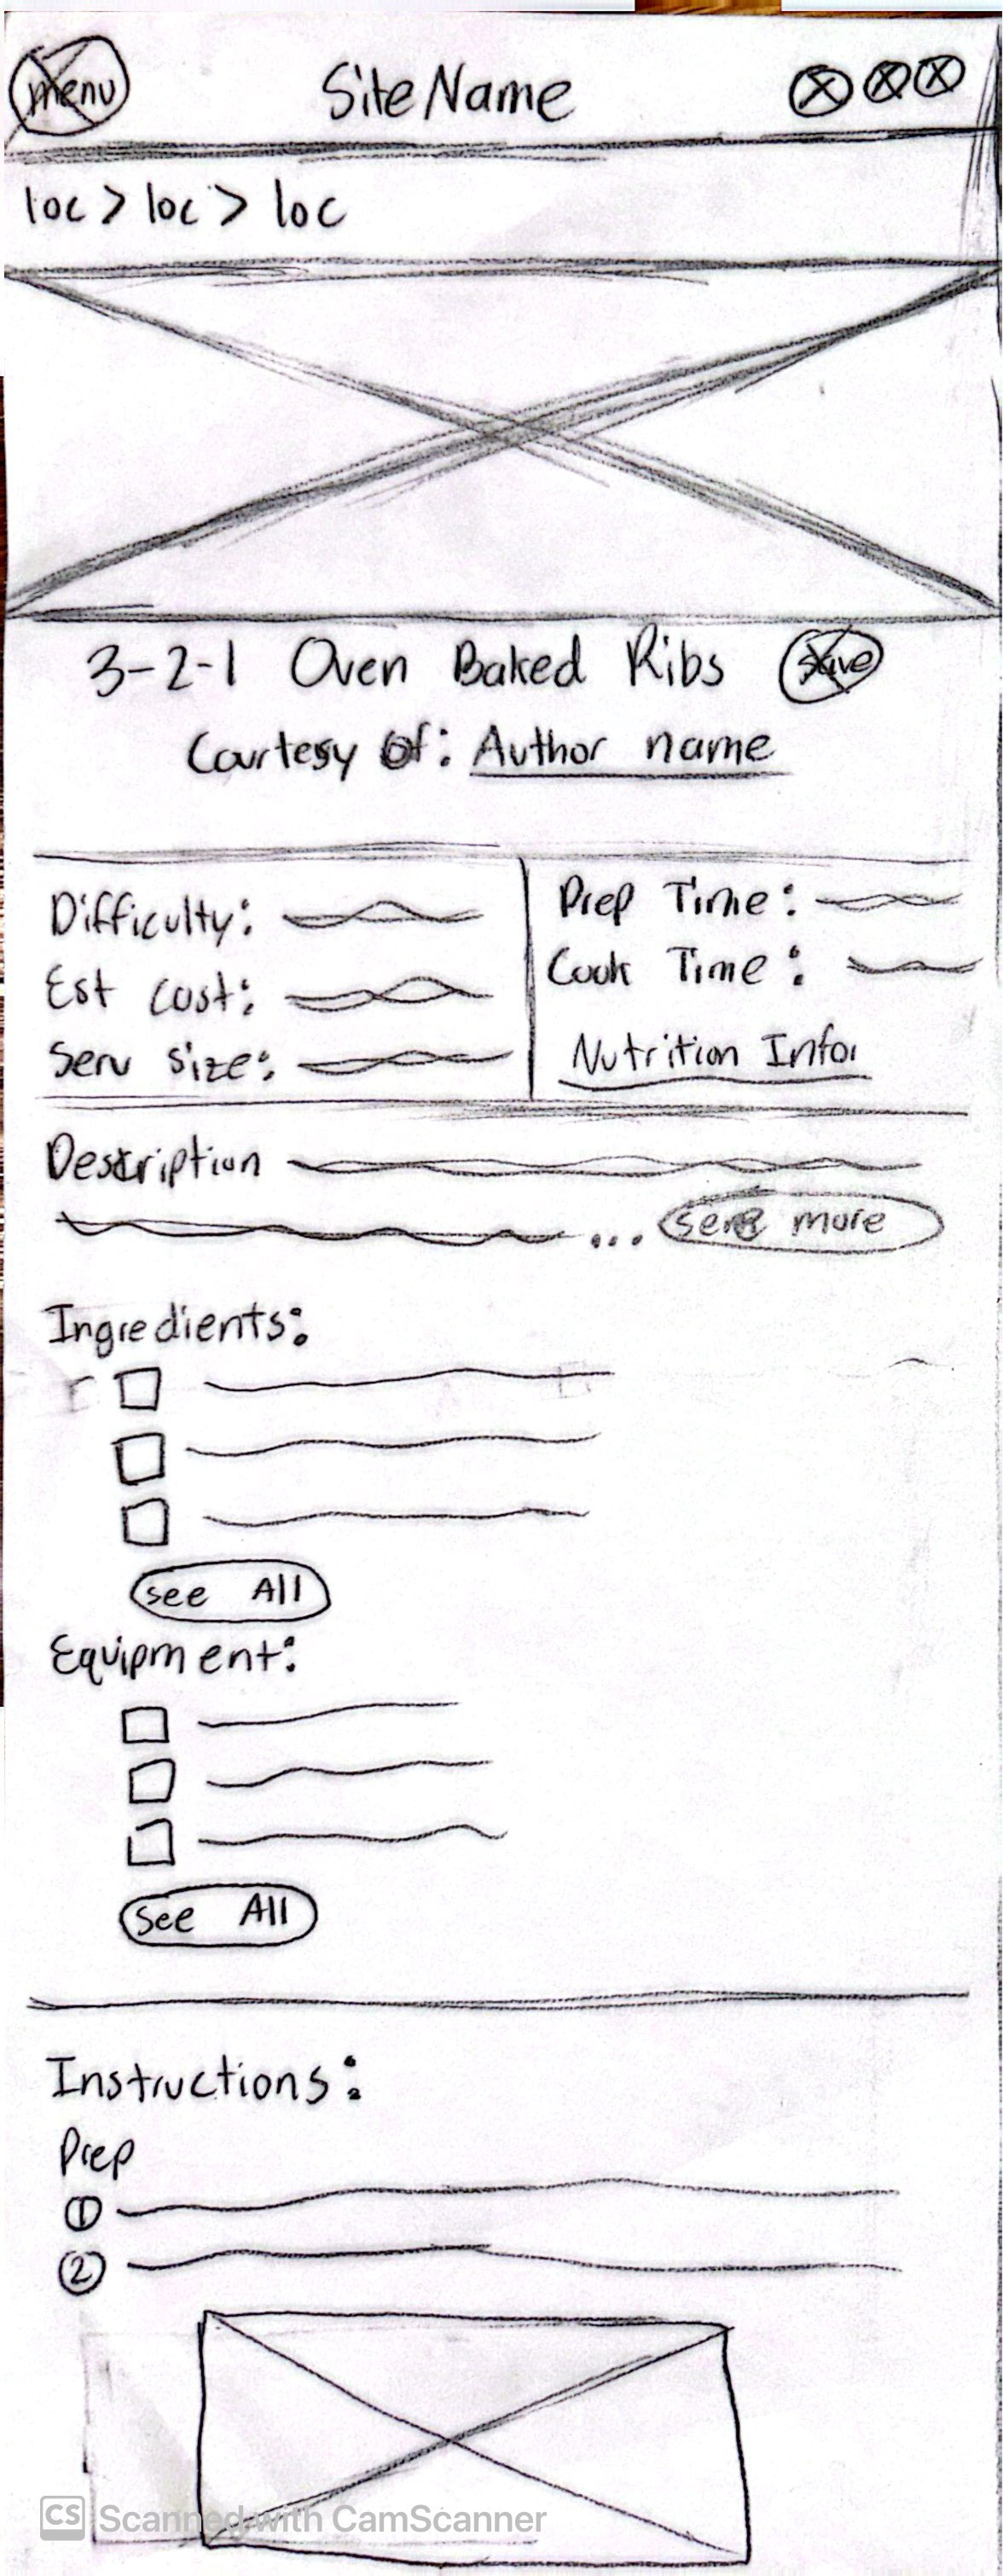 menu Site Name
loc > loc > loc
3-2-1 Oven Baked Ribs save
Courtesy of: Author name
Difficulty: Prep Time:
Est cost: Cook Time:
Serv size: Nutrition Info
Description
... see more
Ingredients:
see All
Equipment:
see All
Instructions:
Prep
1
2
CS Scanned with CamScanner